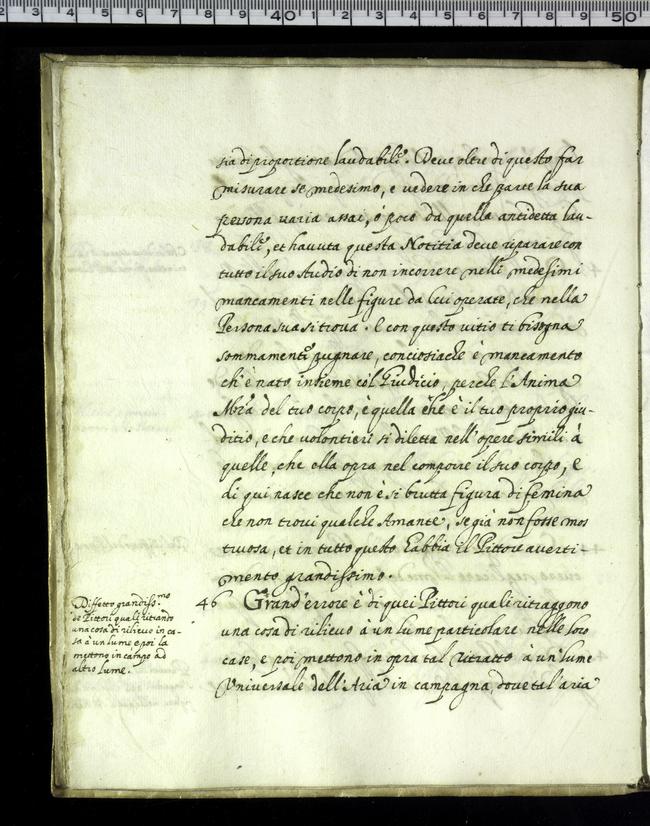 40
50
sia di proportione laudabile. Deve oltre di questo far
misurare se medesimo, e vedere in che parte la sua
persona varia assai, ò poco da quella antidetta lau-
dabile, et havuta questa Notitia deve riparare con
tutto il suo Studio di non incorrere nelli medesimi
mancamenti nelle figure da lui operate, che nella
Persona sua si trova. E con questo vitio ti bisogna
sommamente pugnare, conciosiache è mancamento
ch'è nato insieme col Giudicio, perche l'Anima
Mr̃a del tuo corpo, è quella che è il tuo proprio giu-
ditio, e che volontieri si diletta nell'opere simili à
quelle, che ella opra nel comporre il suo corpo, e
di qui nasce che non è si brutta figura di femina
che non trovi qualche Amante, se già non fosse mos
truosa, et in tutto questo habbia il Pittore averti-
mento grandissimo.
Diffetto grandiss.mo
de Pittori quali ritranno
una cosa di rilievo in ca-
sa à un lume e poi la
mettono in campo ad
altro lume.
46 Grand'errore è di quei Pittori quali ritraggono
una cosa di rilievo à un lume particolare nelle loro
case, e poi mettono in opra tal ritratto à un lume
Universale dell'Aria in campagna, dove tal'aria